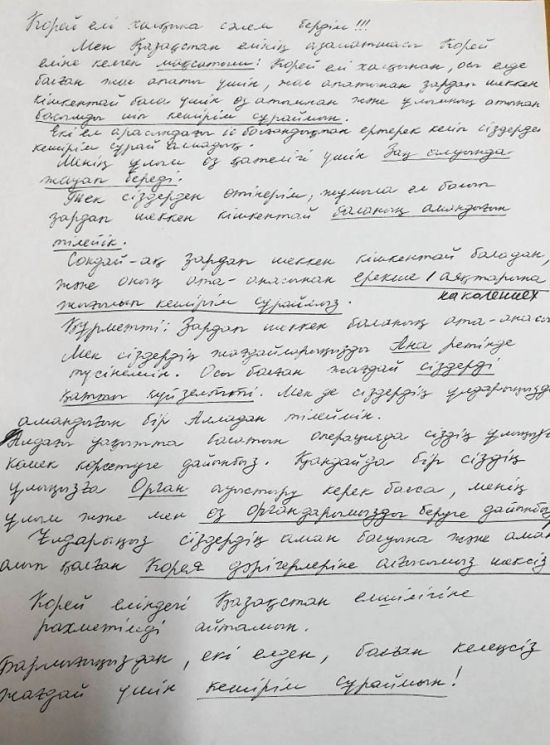 Корей елі халқына сәлем бердім!!!
Мен Қазақстан елінің азаматшасы Корей
еліне келген мақсатым: Корей елі халқынан, осы елде
болған жол апаты үшін, жол апатынан зардап шеккен
кішкентай бала үшін өз атымнан және ұлымның атынан
басымды иіп кешірім сұраймын.
Екі ел арасындағы іс болғандықтан ертерек келіп сіздерден
кешірім сұрай алмадық.
Менің ұлым өз қателігі үшін Заң алдында
жауап береді.
Тек сіздерден өтінерім, жұмыла ел болып
зардап шеккен кішкентай баланың амандығын
тілейік.
Сондай-ақ зардап шеккен кішкентай баладан,
және оның ата-анасынан ерекше/аяқтарына
жығылып кешірім сұраймыз. на коленнех
Құрметті: Зардап шеккен баланың ата-анасы
Мен сіздердің жағдайларыңызды Ана ретінде
түсінемін. Осы болған жағдай сіздерді
қатты күйзелтті. Мен де сіздердің ұлдарыңызды
амандығын бір Алладан тілеймін.
Алдағы уақытта болатын операцияда сіздің ұлыңызға
көмек көрсетуге дайынбыз. Қандайда бір сіздің
ұлыңызға Орган ауыстыру керек болса, менің
ұлым және мен өз органдарымызды беруге дайынбыз
Ұлдарыңыз сіздердің аман болуына және аман
алып қалған Корея дәрігерлеріне алғысымыз шексіз
Корей еліндегі Қазақстан елшілігіне
рахметімді айтамын.
Барлығыңыздан, екі елден, болған келеңсіз
жағдай үшін кешірім сұраймын!